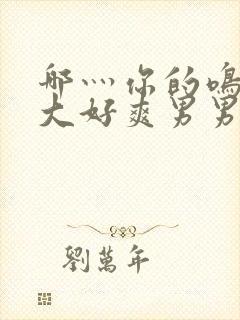 哪灬你的鳴
大好爽男男
劉萬年